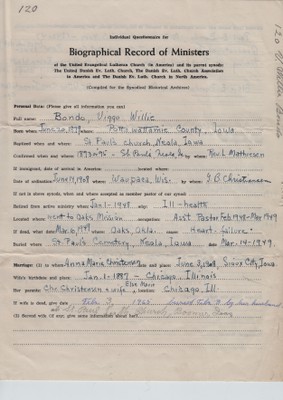 120
120 V. Willie Bondo
Individual Questionnaire for
Biographical Record of Ministers
of the United Evangelical Lutheran Church (in america) and its parent synods:
The United Danish Ev. Luth. Church, The Danish Ev. Luth. Church Association
in America and The Danish Ev. Luth. Church in North America.
(Compiled for the Synodical Historical Archives)
Personal Data: (Please give all information you can)
Full name: Bondo, Viggo Willie
Born where: Pottawattamie County, Iowa
Baptized when and where: St Pauls church, Neola, Iowa
Confirmed when and where: St. Pauls by whom: Rev L. Mathiesen
If immigrated, date of arrival in America: Located where:
Date of ordination: June 14, 1908 where: Waupaca, Wis. by whom: G. B. Christiansen
If not in above synods, when and where accepted as member pastor of our synod:
Retired from active ministry when: Jan-1-1948 why: Ill-health
Located where: went to Oaks Mission occupation: Asst Pastor Feb 1948-Mar 1949
If dead, what date: where: Oaks, Okla. cause: Heart-failure
Buried where: St. Pauls Cemetery, Neola, Iowa date: Mar-14-1949.
Marriage: (1) to whom: Anna Maria Christensen date and place: June 1908, Sioux City, Iowa
Wife's birthdate and place: Jan.-1-1887 - Chicago, Illinois
Her parents: Chr. Christensen & wife, Else Marie location: Chicago, Ill.
If wife is dead, give date: Feb 3, 1965 buried by her husband
at St Paul
(2) Second wife (if any, give same information about her):